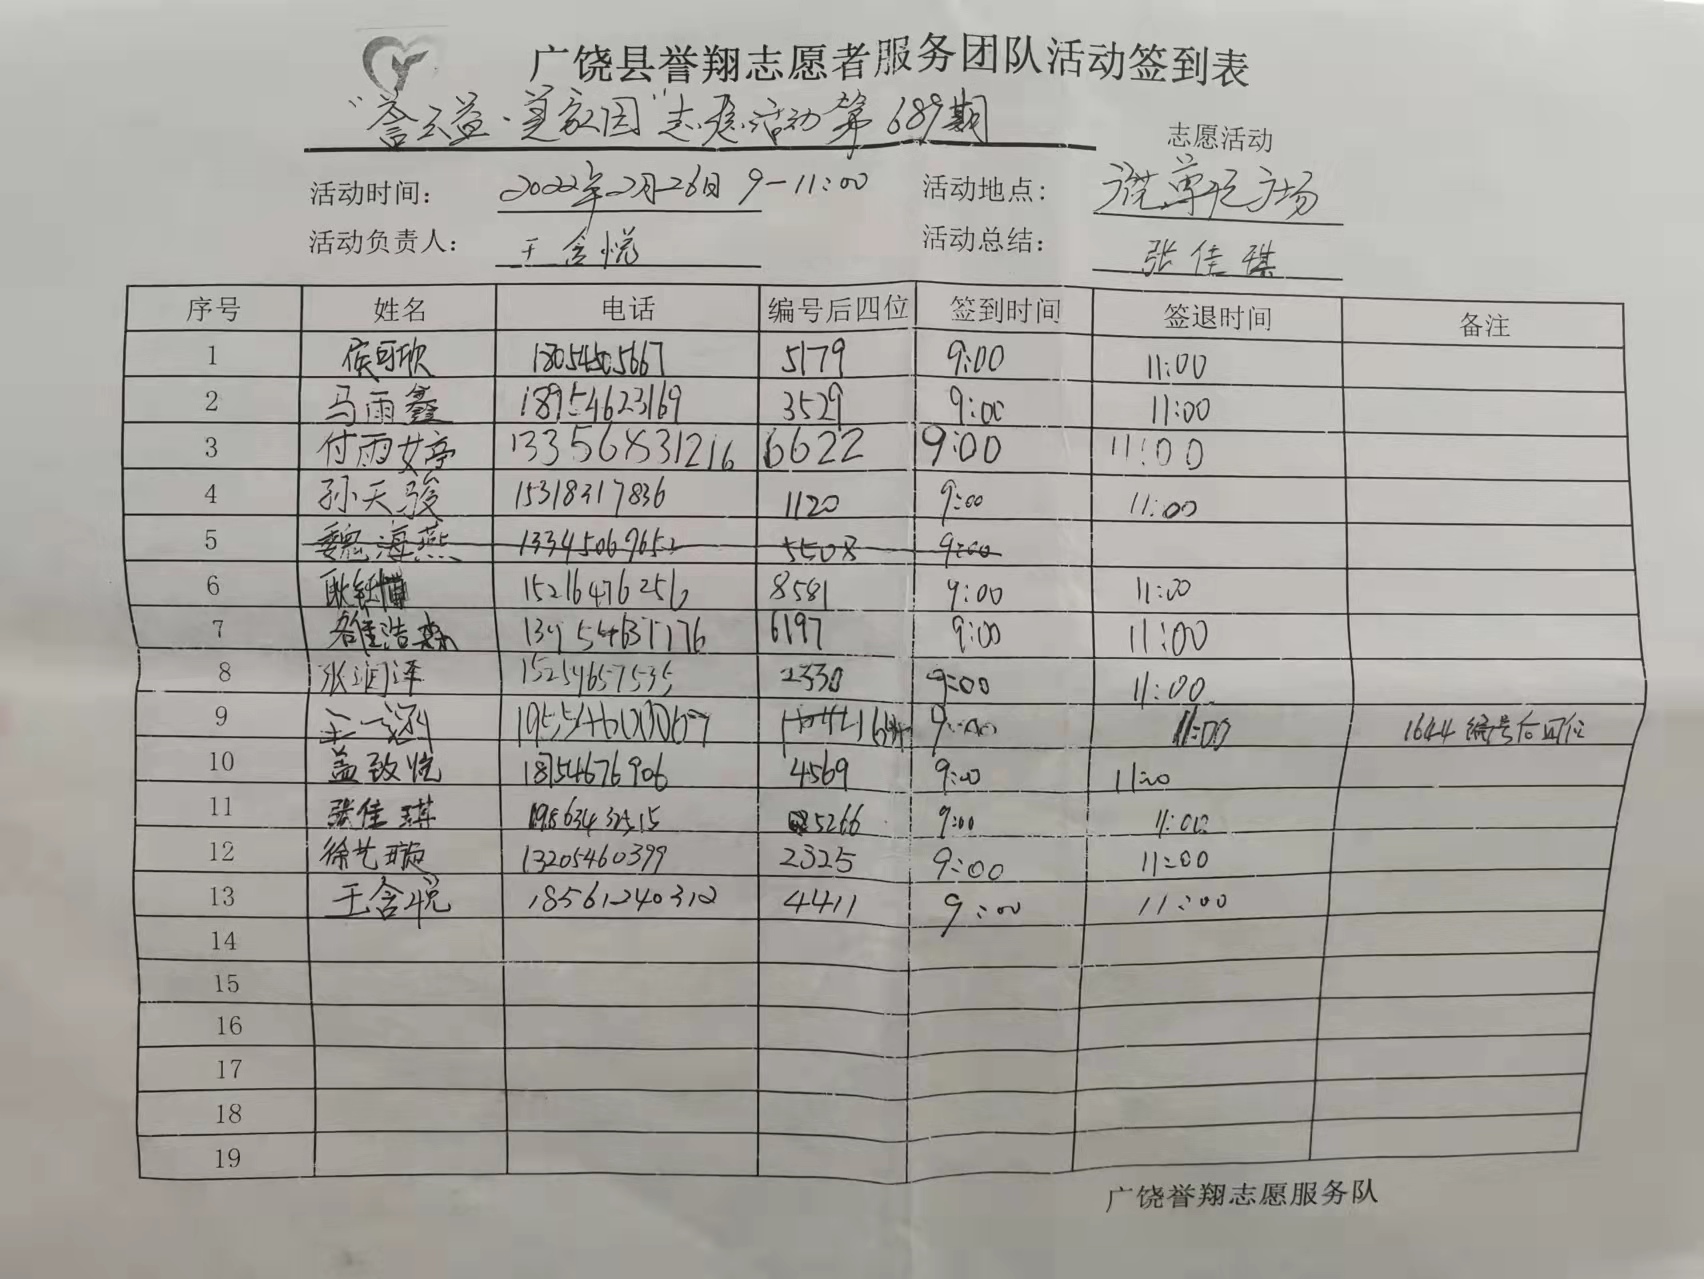 广饶县誉翔志愿者服务团队活动签到表
志愿活动第689期
志愿活动
活动时间: 2022年2月26日 9-11:00 活动地点: 广场
活动负责人: 王含悦 活动总结: 张佳琪
序号 姓名 电话 编号后四位 签到时间 签退时间 备注
1 侯可欣 18054505667 5179 9:00 11:00
2 马雨鑫 18954623169 3529 9:00 11:00
3 付雨婷 13356831216 6622 9:00 11:00
4 孙天骏 15318317836 1120 9:00 11:00
5 魏海燕 13345069652 5508 9:00
6 15216476256 8581 9:00 11:00
7 6197 9:00 11:00
8 张润泽 15254657535 2330 9:00 11:00
9 9:00 11:00 1644 编号后四位
10 盖致恺 4569 9:00 11:00
11 张佳琪 19863432515 5266 9:00 11:00
12 徐艺璇 13205460399 2325 9:00 11:00
13 王含悦 18561240312 4411 9:00 11:00
14
15
16
17
18
19
广饶誉翔志愿服务队